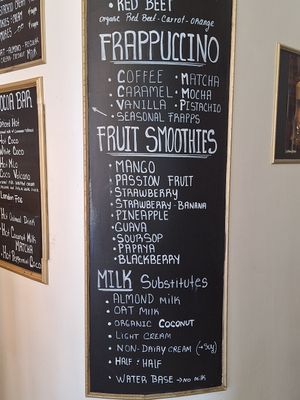 RED BEET
organic Red Beet - Carrot - Orange
FRAPPUCCINO
• COFFEE • MATCHA
• CARAMEL • MOCHA
• VANILLA • PISTACHIO
• SEASONAL FRAPPS
FRUIT SMOOTHIES
• MANGO
• PASSION FRUIT
• STRAWBERRY
• STRAWBERRY - BANANA
• PINEAPPLE
• GUAVA
• SOURSOP
• PAPAYA
• BLACKBERRY
MILK Substitutes
• ALMOND Milk
• OAT MILK
• ORGANIC COCONUT
• LIGHT CREAM
• NON-DAIRY CREAM (→Soy)
• HALF & HALF
• WATER BASE → NO MILK
COCOA BAR
Hot
Hot Coco
White Coco
Hot Milo
Coco Volcano
London Fog
Hot Oatmeal Drink
Hot Coconut Milk
MATCHA
Hot Peppermint Coco